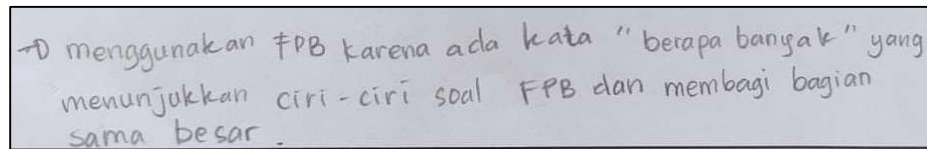 → menggunakan FPB karena ada kata "berapa banyak" yang
menunjukkan ciri-ciri soal FPB dan membagi bagian
sama besar.